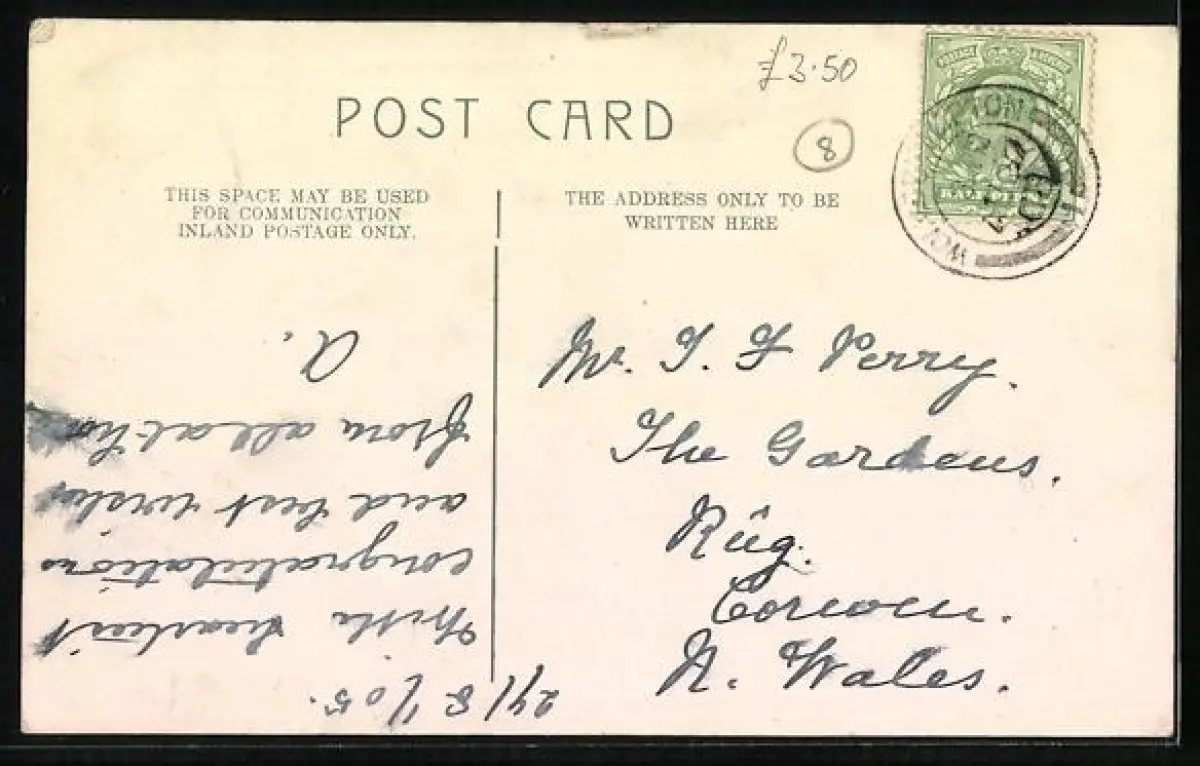 £3.50
8
POST CARD
THIS SPACE MAY BE USED
FOR COMMUNICATION
INLAND POSTAGE ONLY.
THE ADDRESS ONLY TO BE
WRITTEN HERE
Mr. T. F Perry.
The Gardens.
Rûg.
Corwen.
N. Wales.
24/8/05.
With heartiest
congratulations
and best wishes
from all at
A.